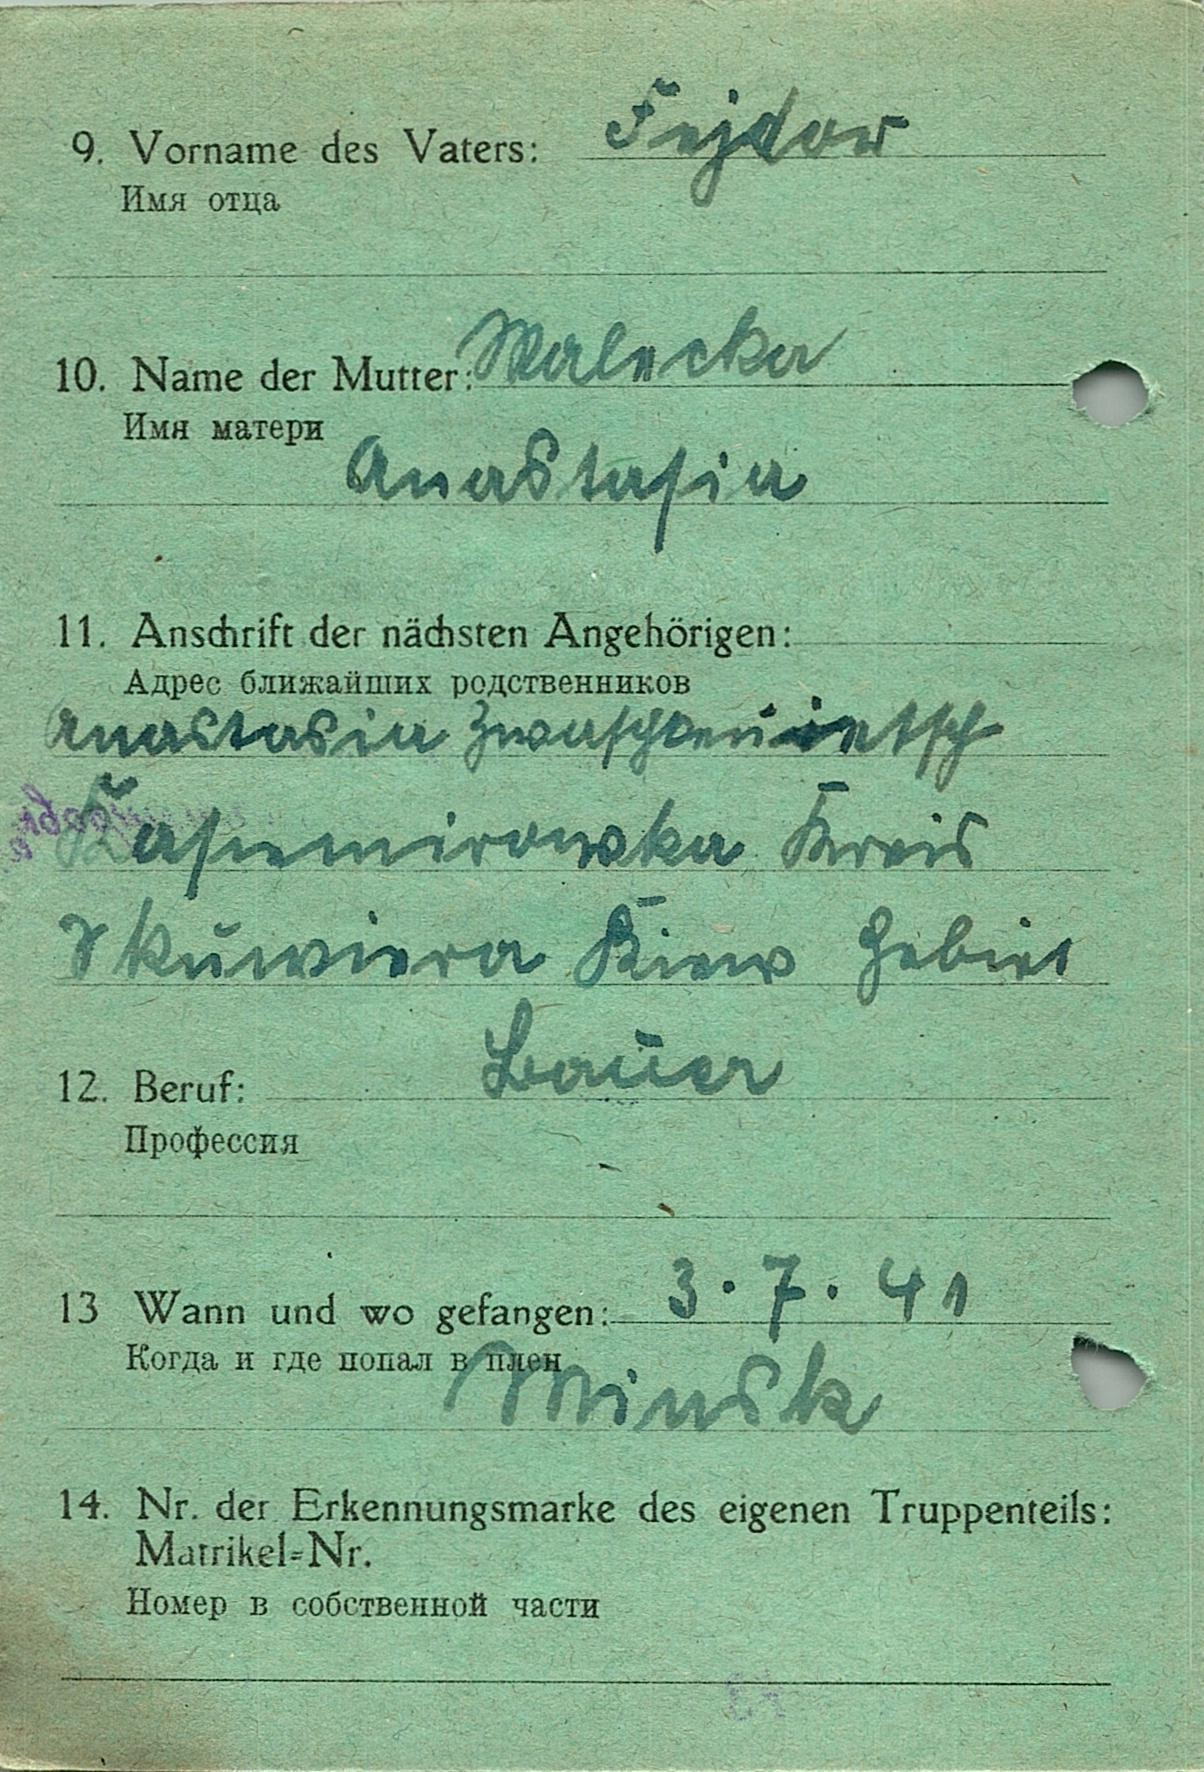 9. Vorname des Vaters: Fejdor
Имя отца
10. Name der Mutter: Malecka
Имя матери
Anastasia
11. Anschrift der nächsten Angehörigen:
Адрес ближайших родственников
Anastasia
Kasimirowka Kreis
Skuwiera Kiew Gebiet
12. Beruf: Bauer
Профессия
13 Wann und wo gefangen: 3.7.41
Когда и где попал в плен
Minsk
14. Nr. der Erkennungsmarke des eigenen Truppenteils:
Matrikel=Nr.
Номер в собственной части